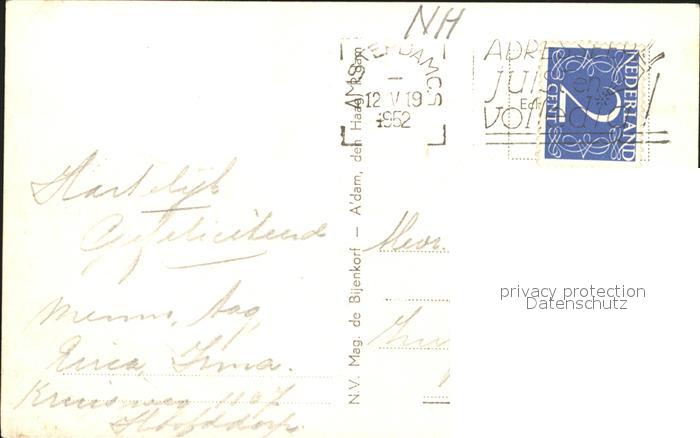 NH
AMSTERDAM C.S.
12 V 19
1952
ADRESSEER
JUIST en
VOLLEDIG!
NEDERLAND
2
CENT
Hartelijk
Gefeliciteerd
Menno, Aag,
Irma.
Kruisweg 1167
Hoofddorp.
N.V. Mag. de Bijenkorf — A'dam, den Haag, R'dam
Mevr.
privacy protection
Datenschutz